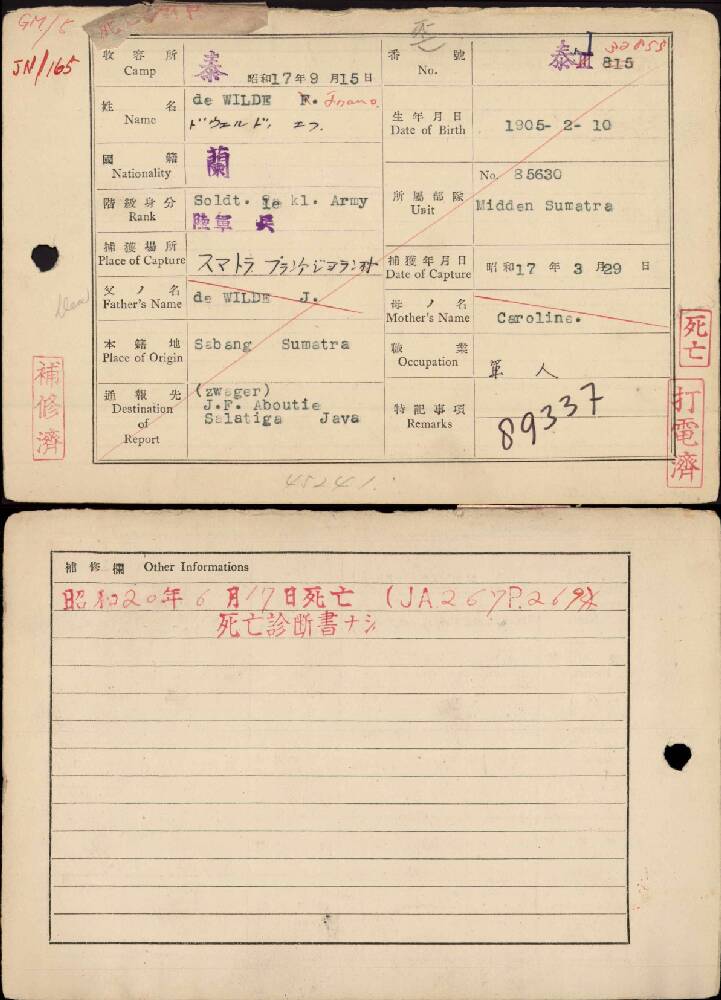 GM/5
JN/165
收容所 Camp 泰 昭和17年9月15日
番號 No. 泰 III 815
姓名 Name de WILDE F. Frano.
ドウェルド, エフ.
生年月日 Date of Birth 1905- 2- 10
國籍 Nationality 蘭
階級身分 Rank Soldt. 1e kl. Army
陸軍 兵
所屬部隊 Unit No. 85630
Midden Sumatra
捕獲場所 Place of Capture スマトラ
捕獲年月日 Date of Capture 昭和17年3月29日
父ノ名 Father's Name de WILDE J.
母ノ名 Mother's Name Caroline.
本籍地 Place of Origin Sabang Sumatra
職業 Occupation 軍人
通報先 Destination of Report (zwager)
J.F. Aboutie
Salatiga Java
特記事項 Remarks 89337
補修濟
死亡
打電濟
45241.
補修欄 Other Informations
昭和20年6月17日死亡 (JA.267P.269)
死亡診断書ナシ